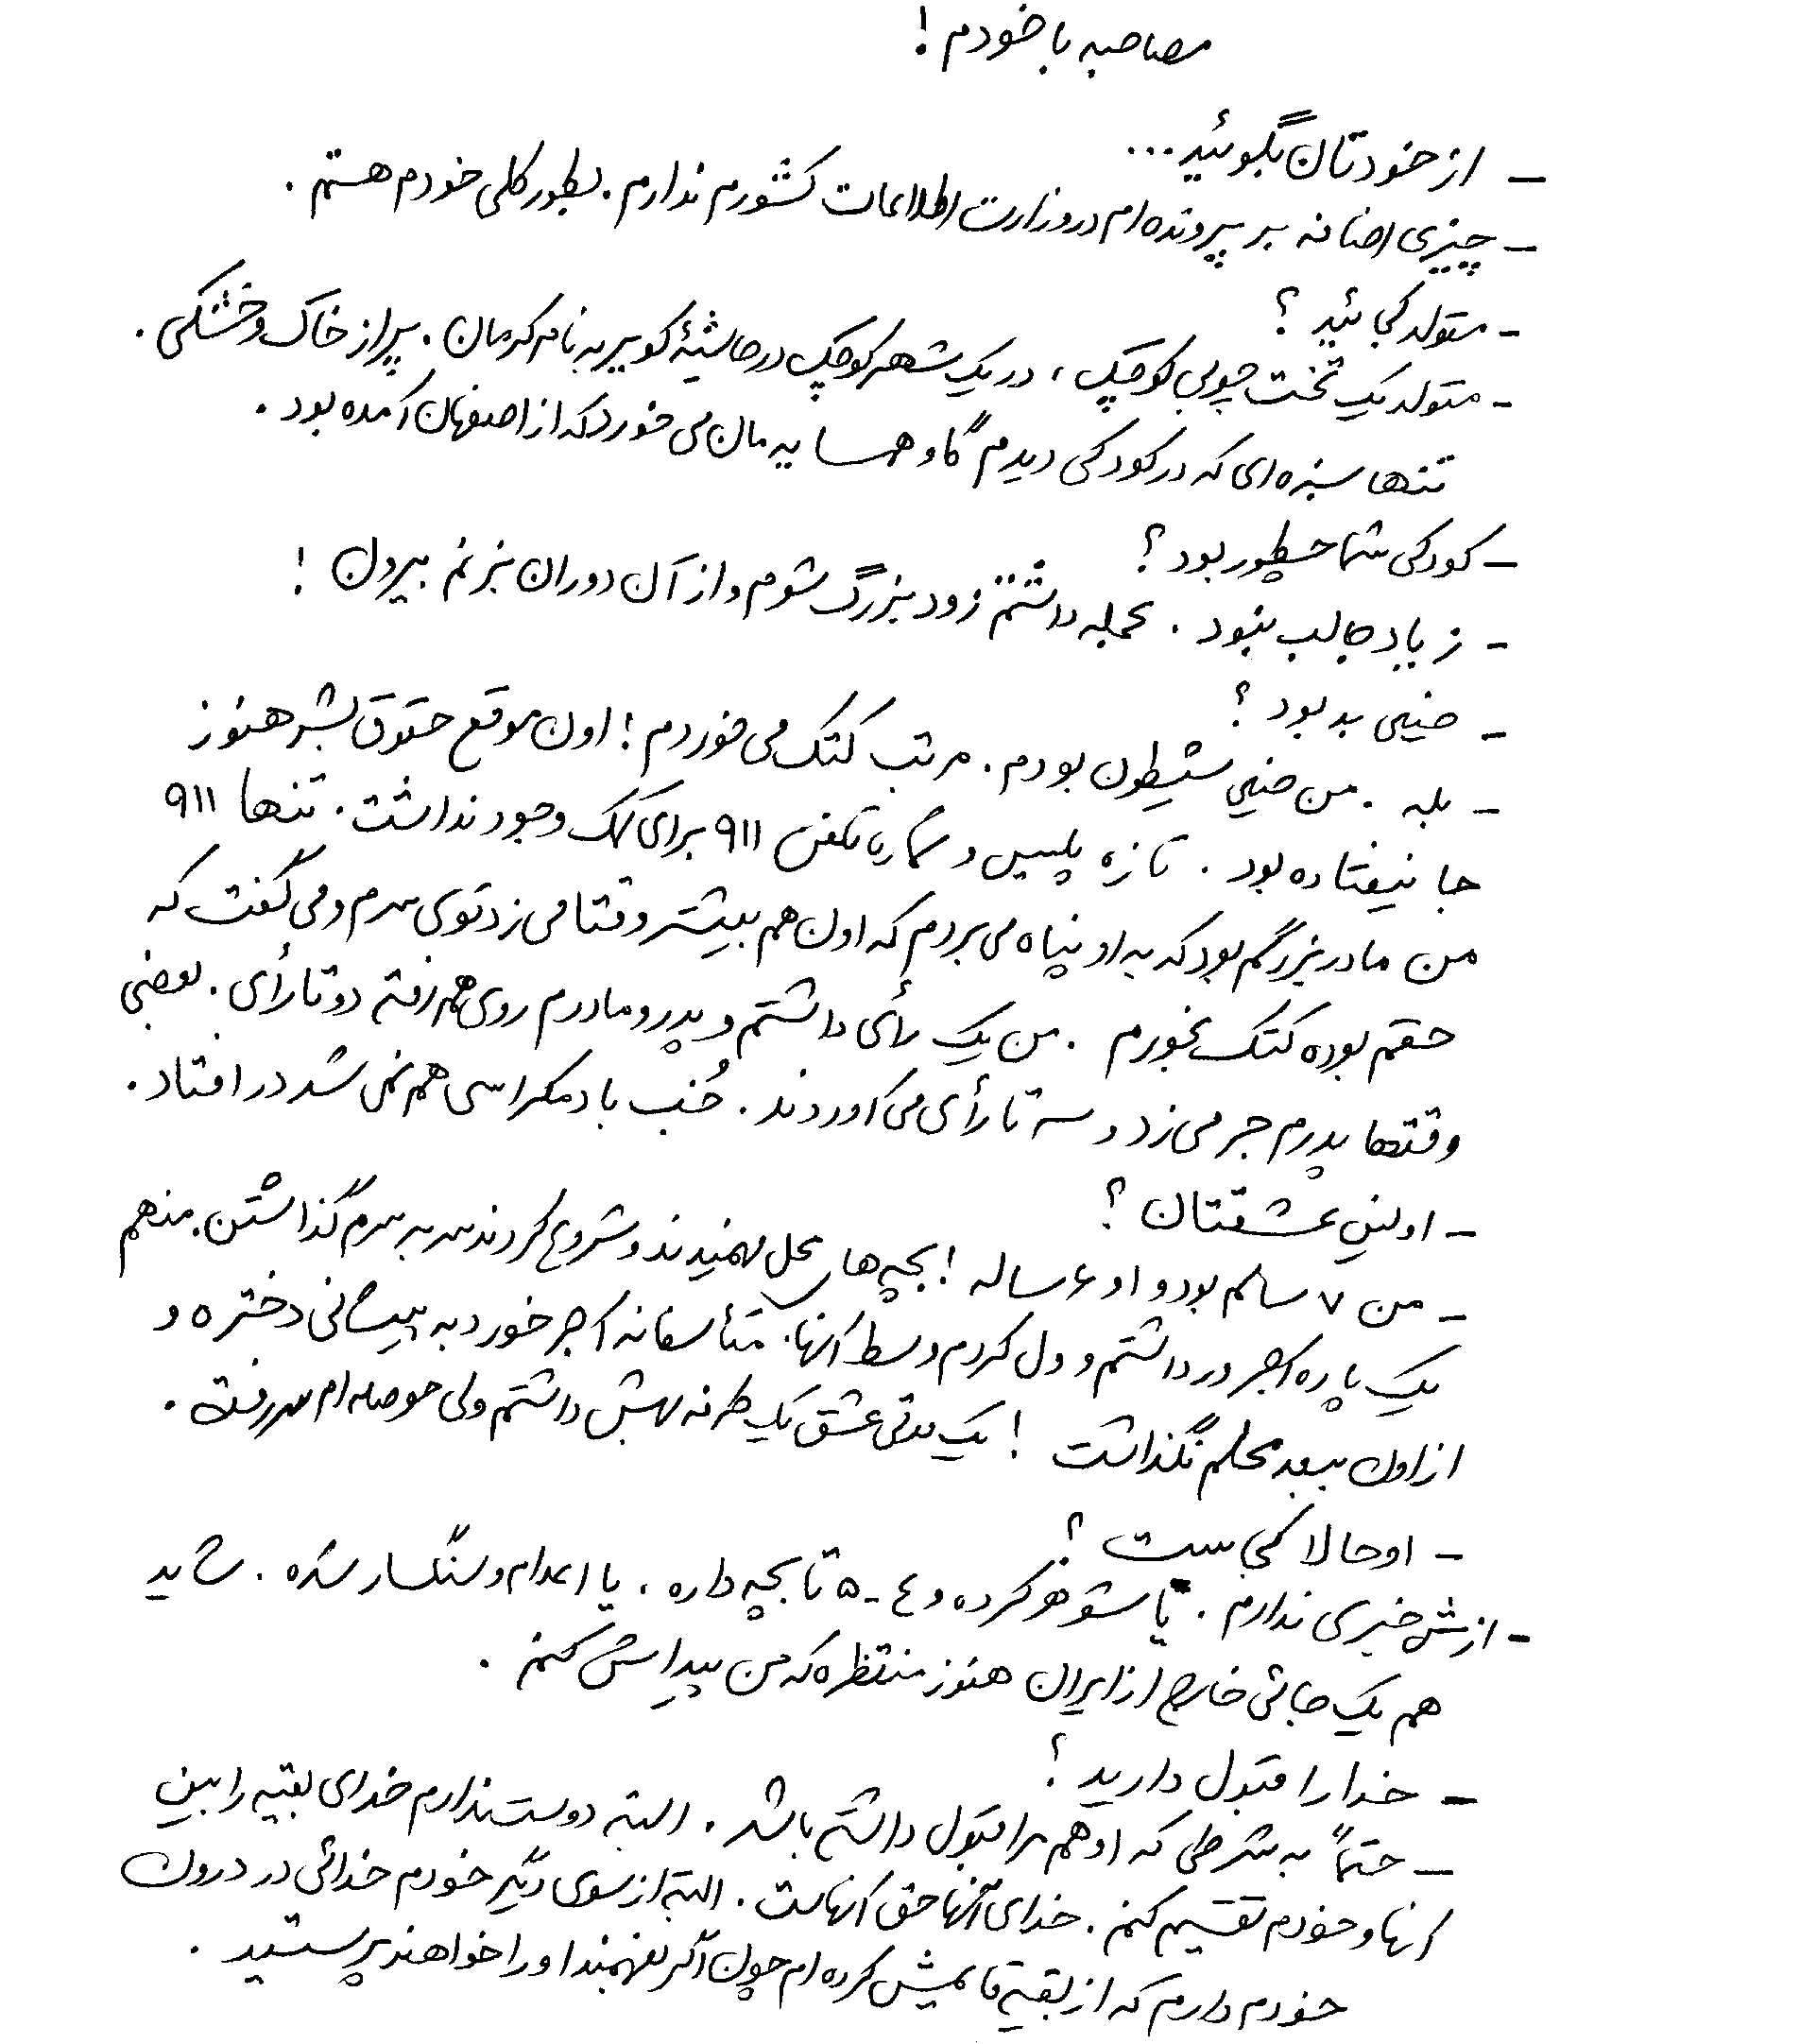 مصاحبه با خودم!
- از خودتان بگوئید...
- چیزی اضافه بر پرونده ام در وزارت اطلاعات کشورم ندارم. بطور کلی خودم هستم.
- متولد کجائید؟
- متولد یک تخت چوبی کوچک، در یک شهر کوچک در حاشیهٔ کویر به نام کرمان. پر از خاک و خشکی.
تنها سبزه ای که در کودکی دیدم گاو همسایه مان می خورد که از اصفهان آمده بود.
- کودکی شما چطور بود؟
- زیاد جالب نبود. عجله داشتم زود بزرگ شوم و از آن دوران بزنم بیرون!
- خیلی بد بود؟
- بله. من خیلی شیطون بودم. مرتب کتک می خوردم! اون موقع حقوق بشر هنوز
جا نیفتاده بود. تازه پلیس و شماره تلفن ۹۱۱ برای کمک وجود نداشت. تنها ۹۱۱
من مادربزرگم بود که به او پناه می بردم که اون هم بیشتر وقتا می زد توی سرم و می گفت که
حقم بوده کتک بخورم. من یک رأی داشتم و پدر و مادرم روی هم رفته دو تا رأی. بعضی
وقتها پدرم جر می زد و سه تا رأی می آوردند. خُب با دمکراسی هم نمی شد در افتاد.
- اولین عشقتان؟
- من ۷ سالم بود و او ۶ ساله! بچه های محل فهمیدند و شروع کردند سر به سرم گذاشتن. منهم
یک پاره آجر ور داشتم و ول کردم وسط آنها. متأسفانه آجر خورد به پیشانی دختره و
از اون ببعد محلم نگذاشت! یک مدتی عشق یک طرفه بهش داشتم ولی حوصله ام سر رفت.
- او حالا کجاست؟
- ازش خبری ندارم. یا شوهر کرده و ٤-۵ تا بچه داره. یا اعدام و سنگسار شده. شاید
هم یک جائی خارج از ایران هنوز منتظره که من پیداش کنم.
- خدا را قبول دارید؟
- حتماً به شرطی که او هم مرا قبول داشته باشد. البته دوست ندارم خدای بقیه را بین
آنها و خودم تقسیم کنم. خدای آنها حق آنهاست. البته از سوی دیگر خودم خدائی در درون
خودم دارم که از بقیه قایمش کرده ام چون اگر بفهمند او را خواهند پرستید.